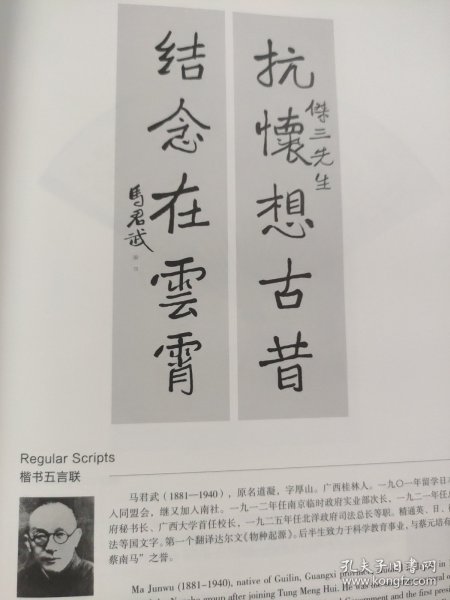 抗懷想古昔
傑三先生
结念在雲霄
馬君武
Regular Scripts
楷书五言联
马君武(1881—1940),原名道凝,字厚山。广西桂林人。一九〇一年留学日
人同盟会,继又加入南社。一九一二年任南京临时政府实业部次长,一九二一年任
府秘书长、广西大学首任校长,一九二五年任北洋政府司法总长等职。精通英、日、
法等国文字。第一个翻译达尔文《物种起源》。后半生致力于科学教育事业,与蔡元培有
蔡南马”之誉。
Ma Junwu (1881-1940), native of Guilin, Guangxi province,
group after joining Tung Meng Hui. He was the
Government and the first pres
孔夫子旧书网